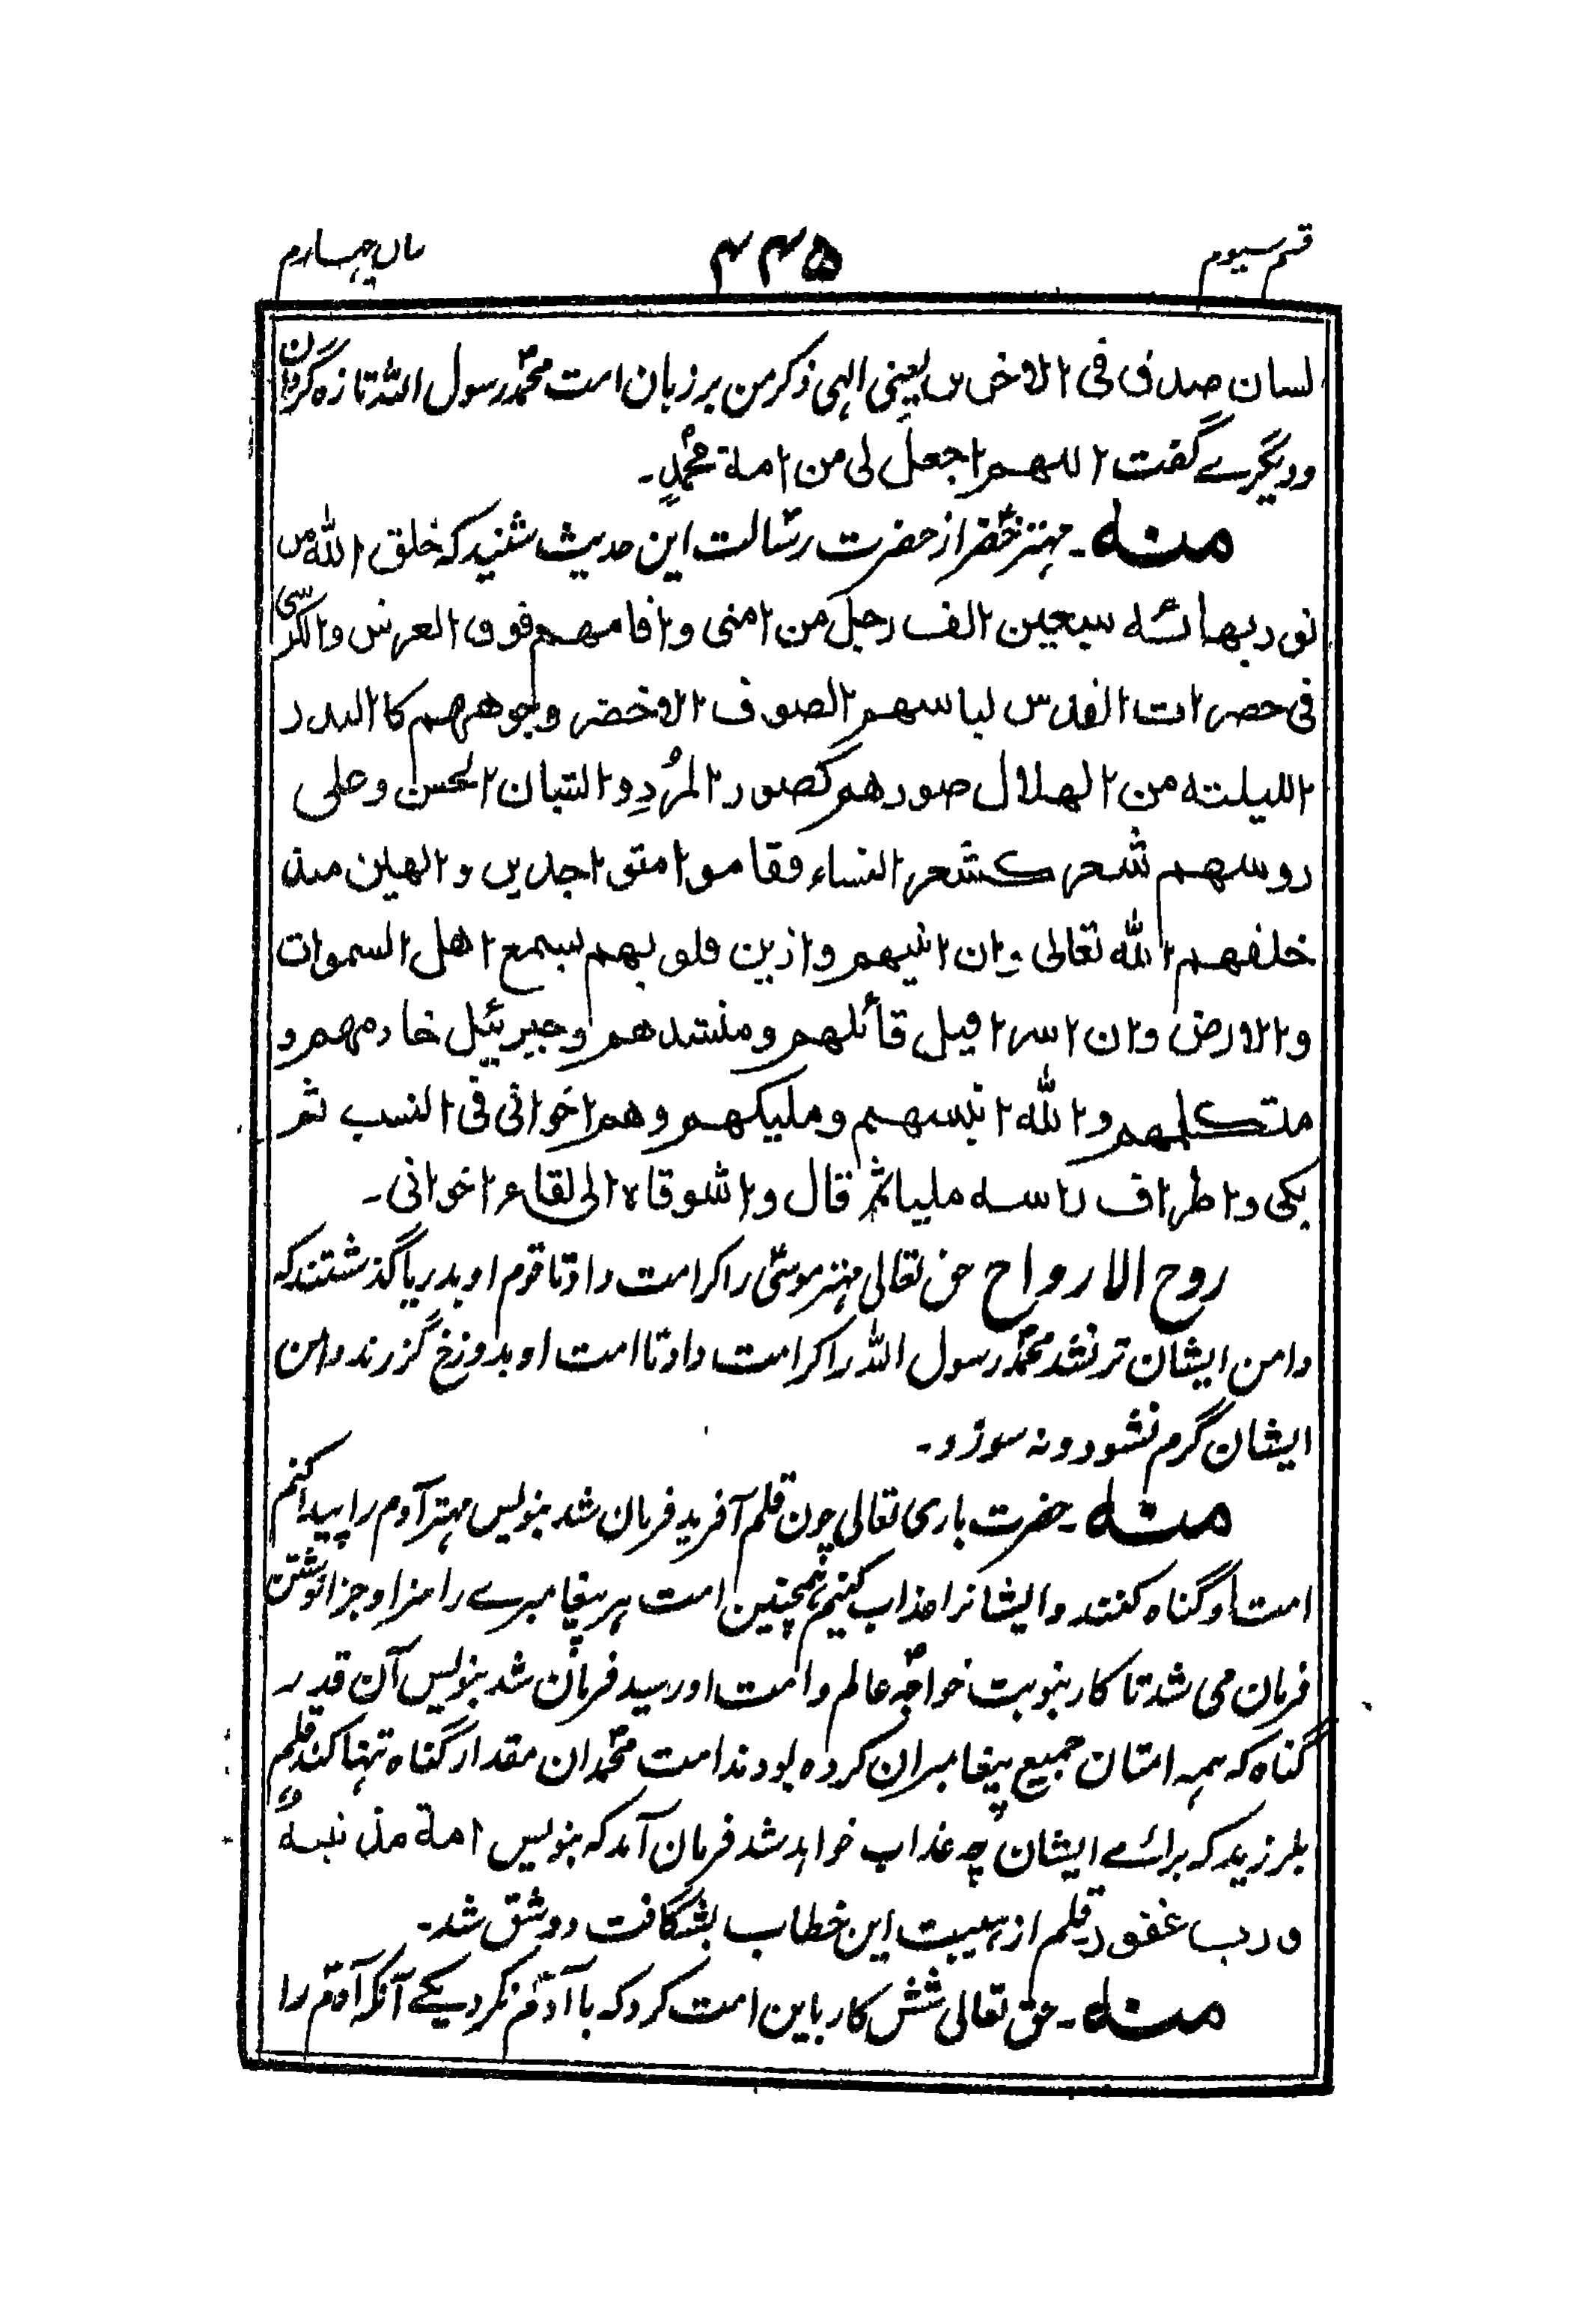 قسم سیوم
۴۴۵
باب چہارم
لسان صدق فی الاخرین یعنی الہی ذکر من بر زبان امت محمدؐ رسول اللہ تازہ گردان
و دیگرے گفت اللہم اجعل لی من امة محمدٍؐ۔
منہ۔ مہتر خضرؑ از حضرت رسالتؐ این حدیث شنید کہ خلق اللہ من
نور بہائہ سبعین الف رجل من امتی و اقامہم فوق العرش والکرسی
فی حضرات القدس لباسہم الصوف الاخضر وجوہہم کالبدر
اللیلتہ من الہلال صورہم کصور المُردِ و الشبان الحسن وعلی
روسہم شعر کشعر النساء فقاموا متواجدین والہین منذ
خلقہم اللہ تعالی و ان انینہم و ازین قلوبہم یسمع اہل السموات
والارض و ان اسرافیل قائلہم ومنشدہم وجبریئیل خادمہم و
متکلمہم و اللہ انیسہم وملیکہم وہم اخوانی فی النسب ثم
بکی و اطراف راسہ ملیا ثم قال و اشوقاہ الی لقاء اخوانی۔
روح الارواح حق تعالی مہتر موسیؑ را کرامت داد تا قوم او بدریا گذشتند کہ
دامن ایشان تر نشد محمدؐ رسول اللہ را کرامت داد تا امت او بدوزخ گزرند دامن
ایشان گرم نشود و نہ سوزد۔
منہ۔ حضرت باری تعالی چون قلم آفرید فرمان شد بنویس مہتر آدم را پیدا کنم
امت او گناہ کنند و ایشانرا عذاب کنیم ہمچنین امت ہر پیغامبرے را سزا و جزا نوشتن
فرمان می شد تا کار بنوبت خواجہؐ عالم و امت او رسید فرمان شد بنویس آن قدر
گناہ کہ ہمہ امتان جمیع پیغامبران کردہ بودند امت محمدؐ ان مقدار گناہ تنہا کند قلم
بلرزید کہ برائے ایشان چہ عذاب خواہد شد فرمان آمد کہ بنویس امة مذنبةٌ
و رب غفور قلم از ہیبت این خطاب بشگافت دو شق شد۔
منہ۔ حق تعالی شش کار باین امت کرد کہ با آدمؑ نکرد یکے آنکہ آدمؑ را